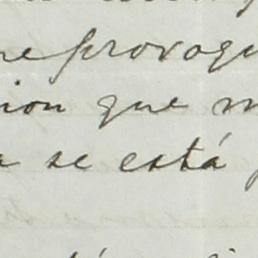 me provoqu
ion que m
a se está